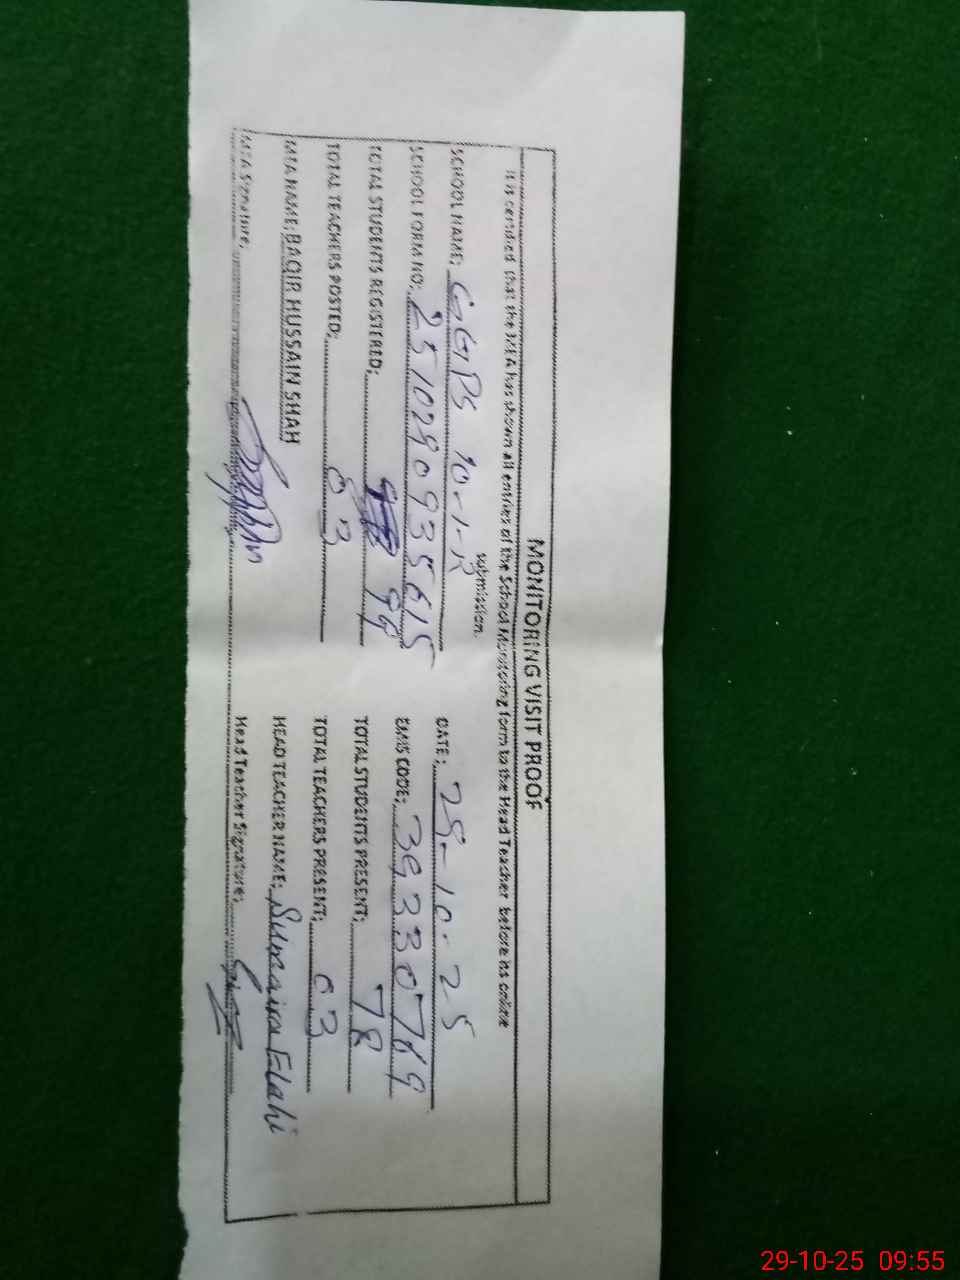 MONITORING VISIT PROOF
It is certified that the MEA has shown all entries of the School Monitoring form to the Head Teacher before its online
submission.
SCHOOL NAME: GGPS 10-1-R DATE: 29-10-25
SCHOOL FORM NO: 2510290935615 EMIS CODE: 39330769
TOTAL STUDENTS REGISTERED: TOTAL STUDENTS PRESENT: 78
TOTAL TEACHERS POSTED: 03 TOTAL TEACHERS PRESENT: 03
MEA NAME: BAQIR HUSSAIN SHAH HEAD TEACHER NAME: Sumaira Elahi
MEA Signature: Head Teacher Signature:
29-10-25 09:55